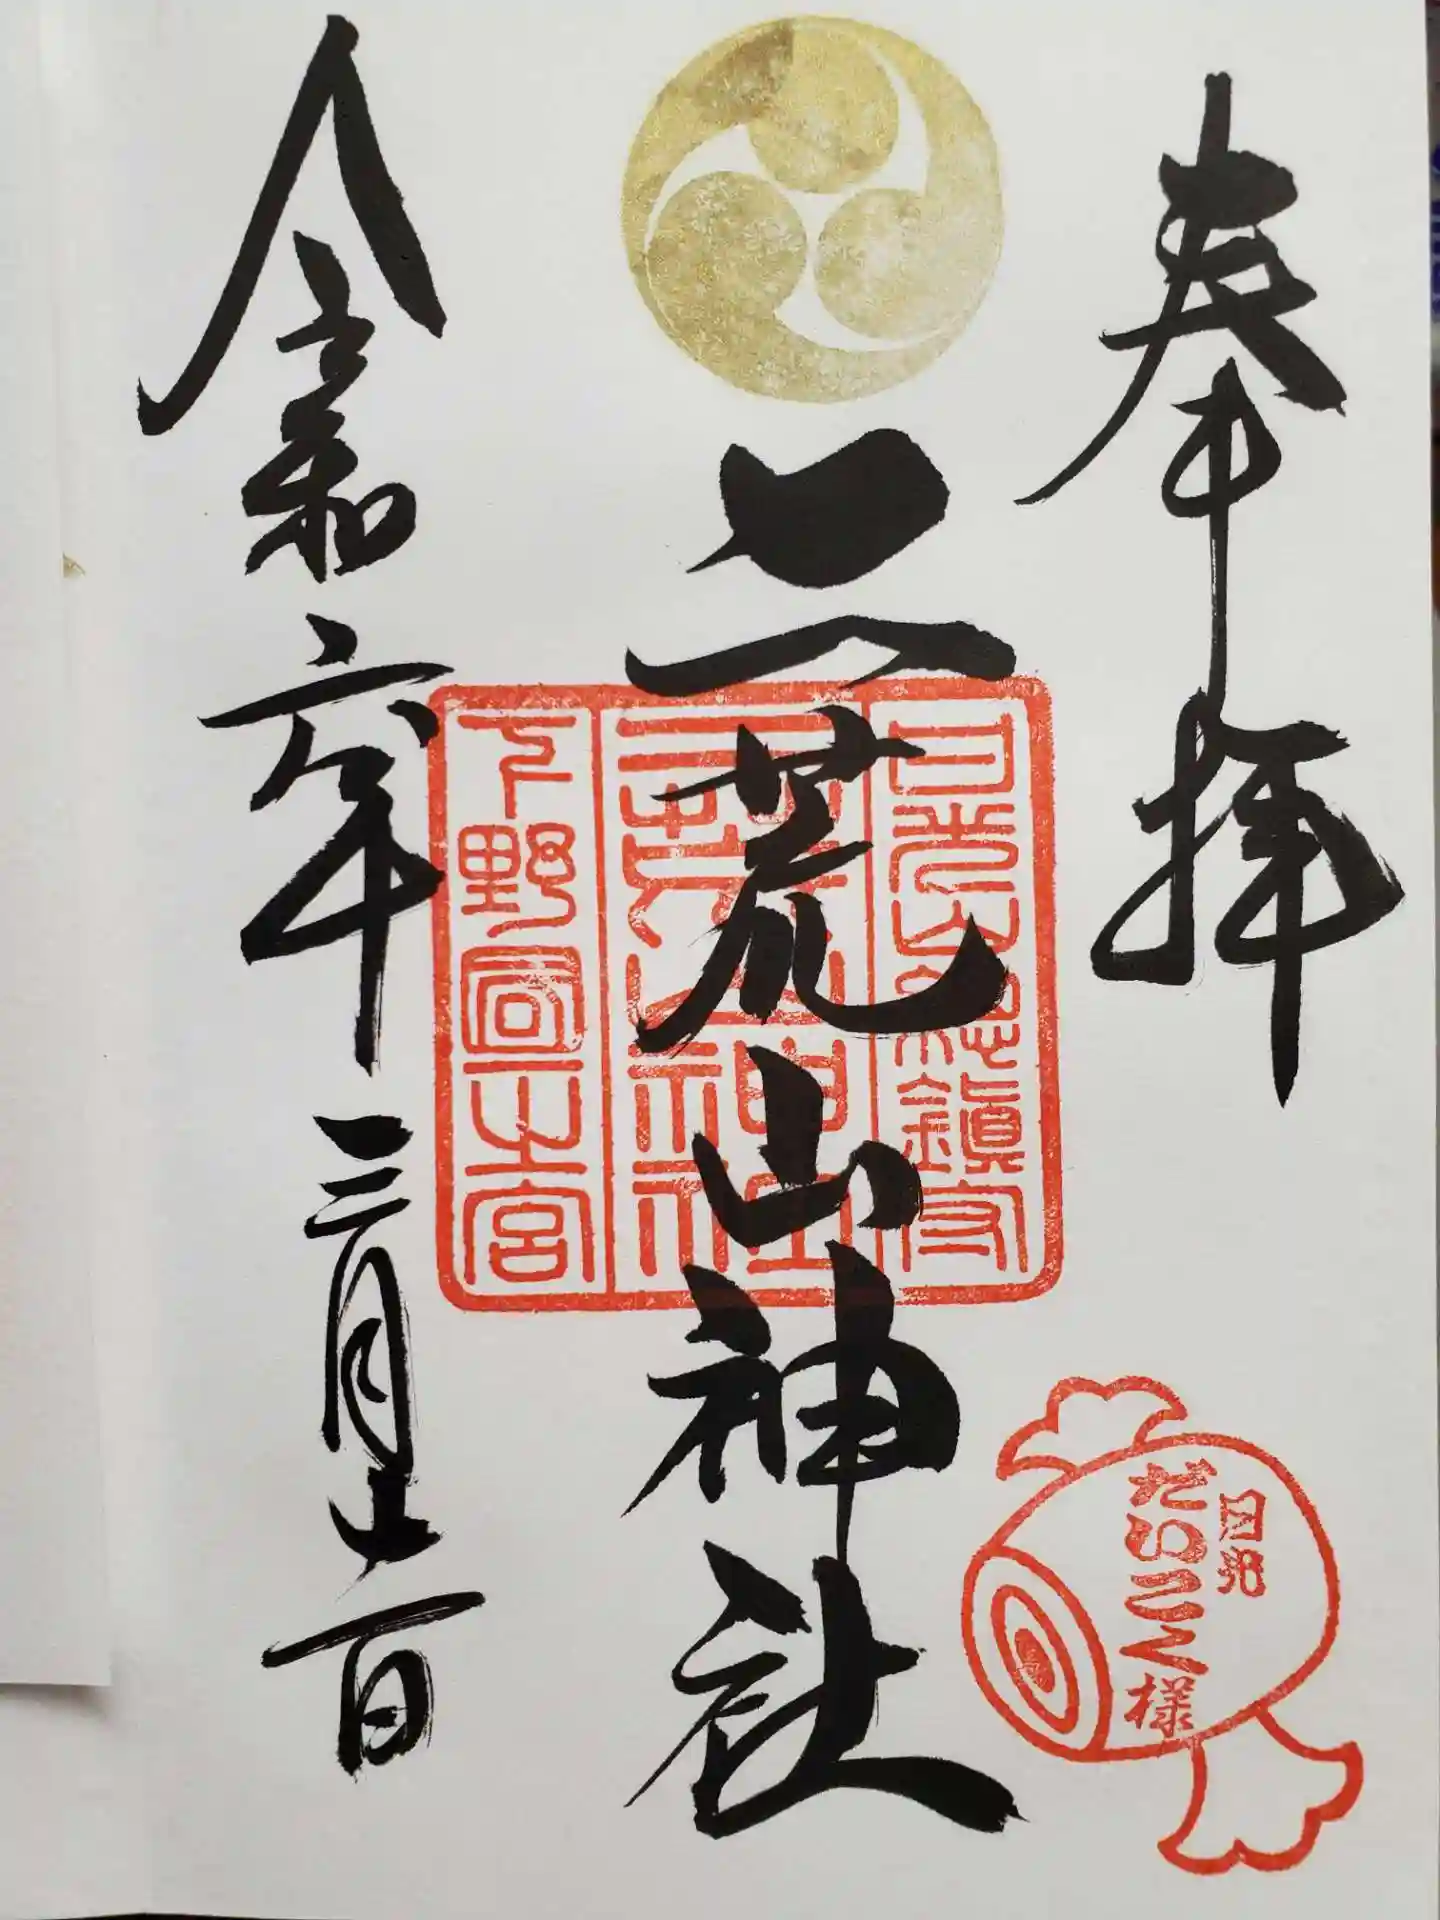 奉拝
二荒山神社
令和六年三月十一日
日光山總鎮守
二荒山神社
下野國一之宮
日光
だいこく様